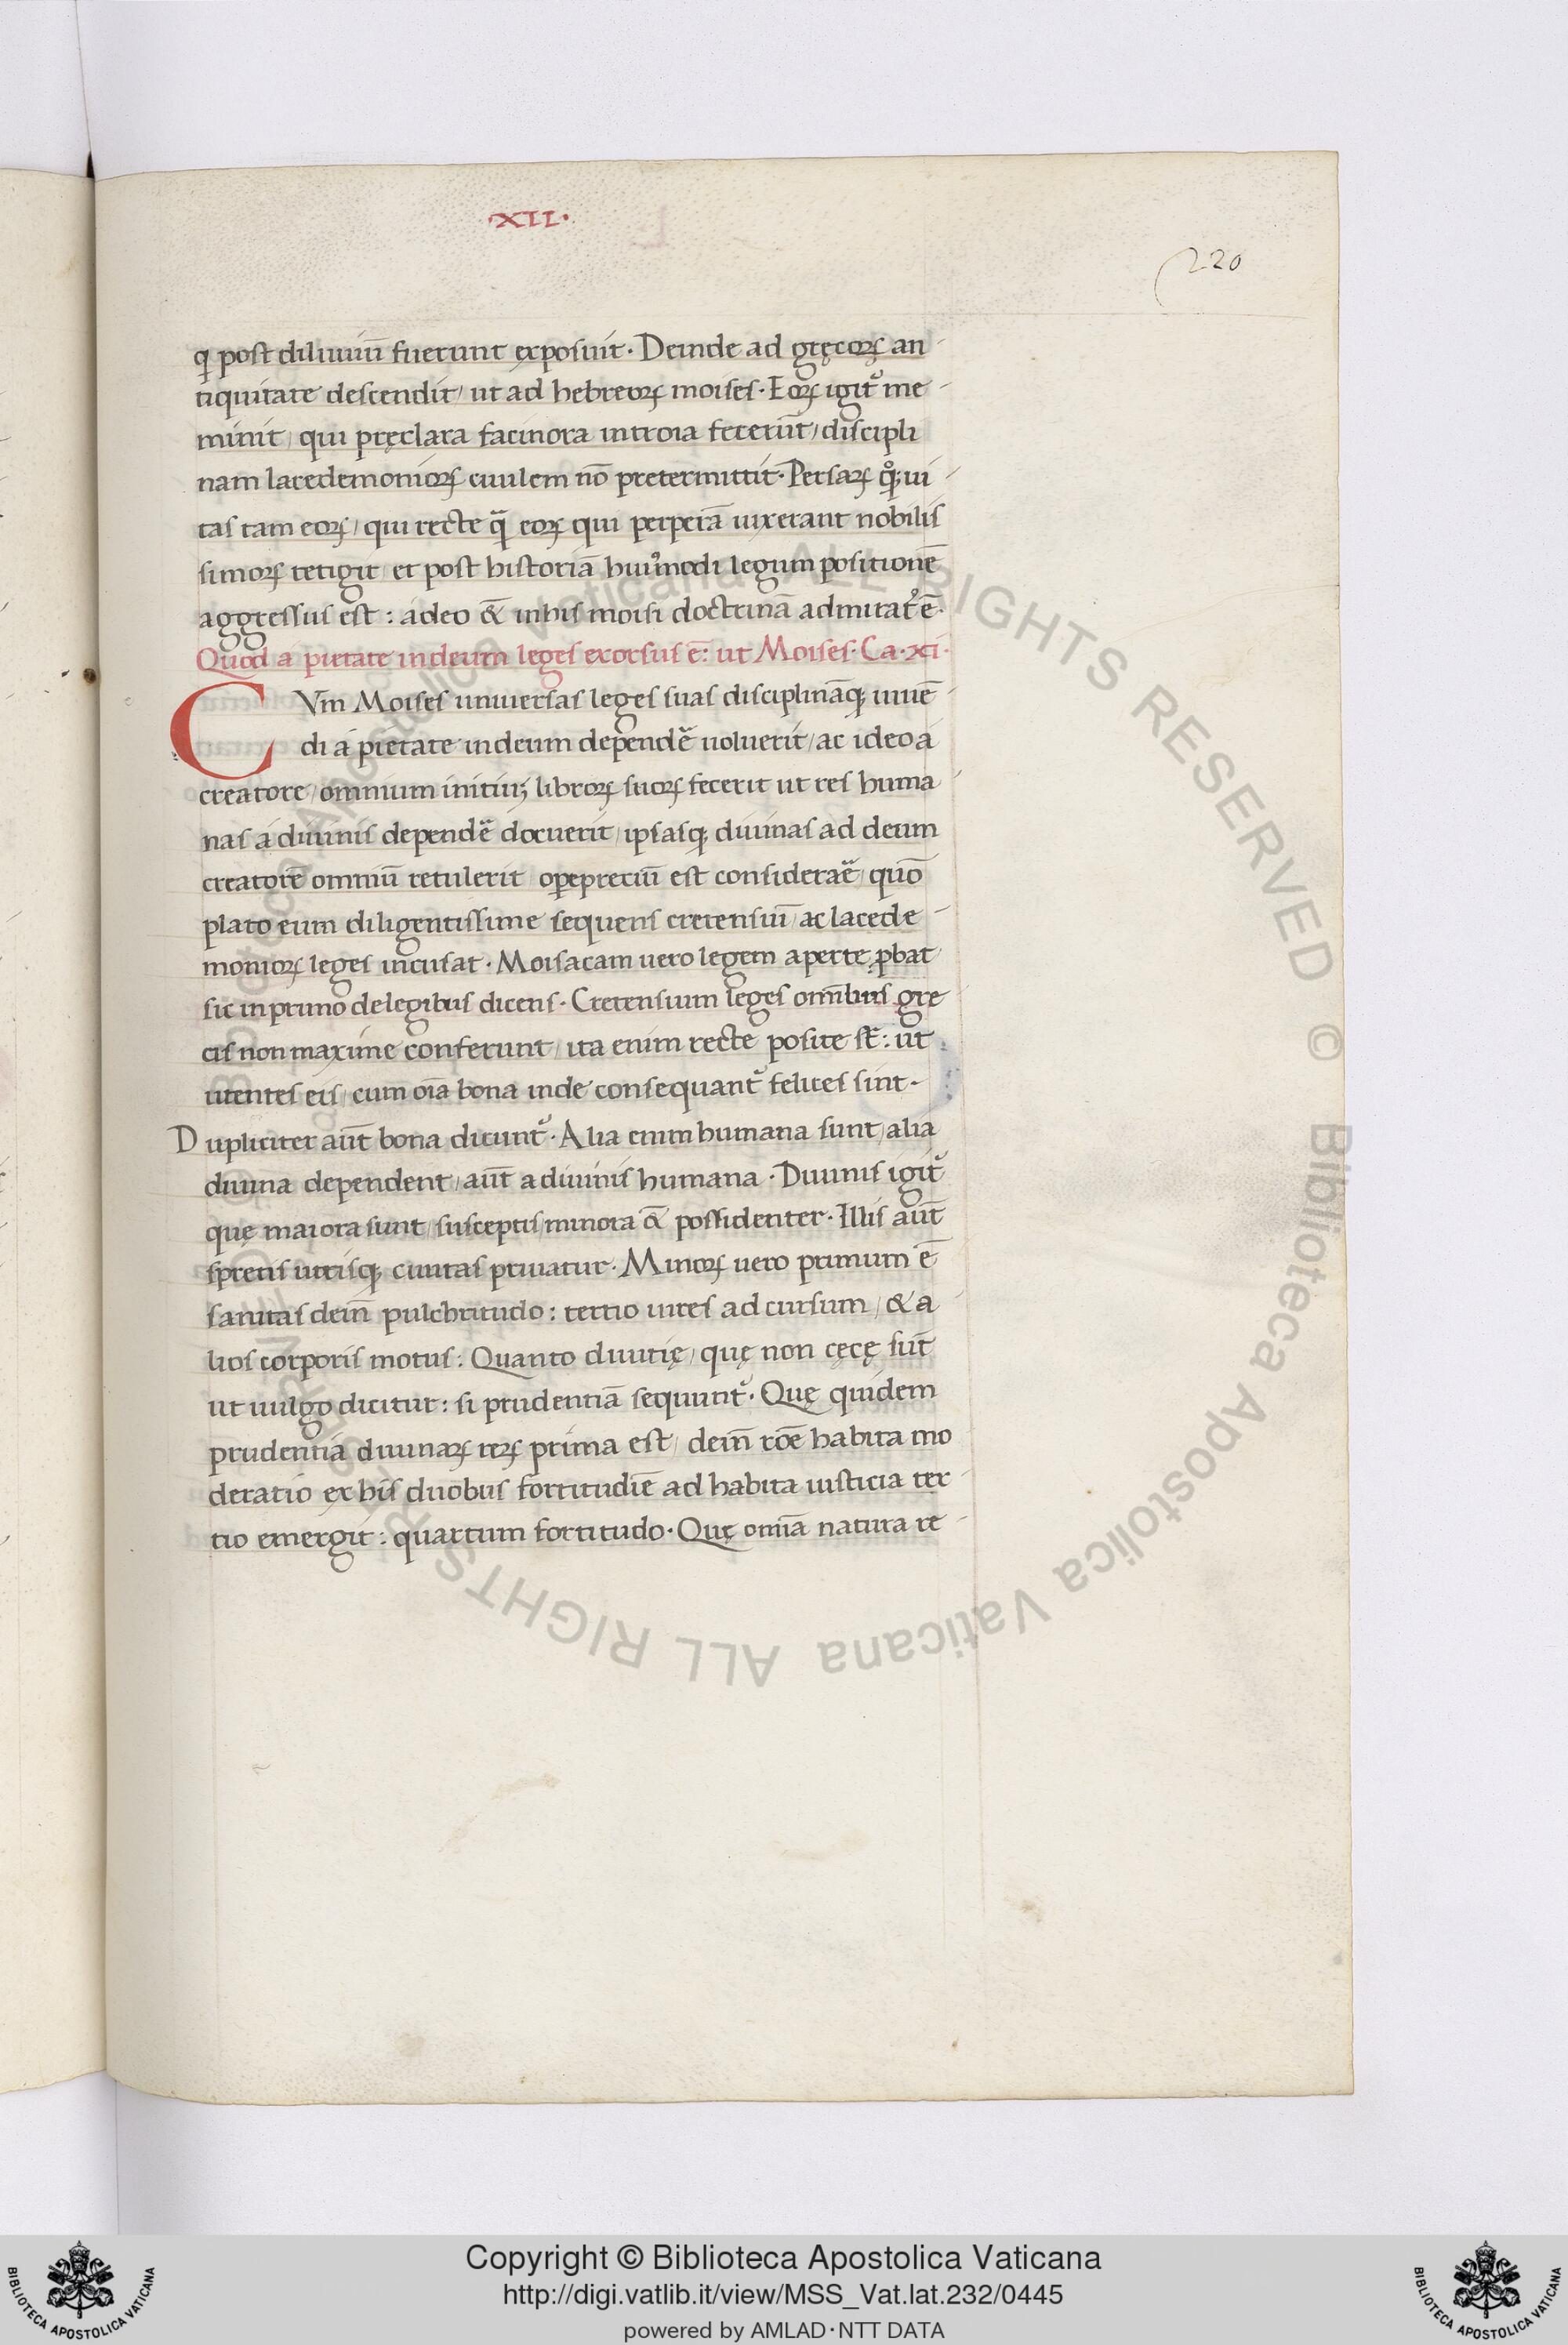 ·XII·
220
q̨ post diluuiū fuerunt exposuit· Deinde ad gręcoꝝ an-
tiquitate descendit/ ut ad hebreoꝝ moises· Eoꝝ igit᷑ me-
minit/ qui pręclara facinora introia fecerūt/ discipli
nam lacedemonioꝝ ciuilem nō pretermittit· Persaꝝ qͦꝫ ui-
tas tam eoꝝ/ qui recte q̄ eoꝝ qui perperā uixerant nobilis
simoꝝ tetigit/ et post historiā huiꝰmodi legum positionē
aggressus est: adeo & inhis moisi doctrinā admirat᷑ ē·
Quod a pietate in deum leges exorsus ē: ut Moises· Ca·xi·
CVm Moises uniuersas leges suas disciplināqꝫ uiuē-
di a pietate in deum dependē̆ uoluerit/ ac ideo a
creatore/ omnium initiuꝫ libroꝝ suoꝝ fecerit ut res huma-
nas a diuinis dependē̆ docuerit/ ipsasqꝫ diuinas ad deum
creatorē omniū retulerit oꝑepreciū est considerar̄e/ quō
plato eum diligentissime sequens cretensiū/ ac lacede-
monioꝝ leges incusat· Moisacam uero legem aperte ꝓbat
sic in primo de legibus dicens· Cretensium leges omībus gre
cis non maxime conferunt/ ita enim recte posite st̄: ut
utentes eis/ cum oīa bona inde consequant᷑ felices sint·
Dupliciter aūt bona dicunt᷑· Alia enim humana sunt/ alia
diuina dependent/ aūt a diuinis humana· Diuinis igit᷑
quę maiora sunt/ susceptis/ minora & possidenter· Illis aūt
spretis utrisqꝫ ciuitas priuatur· Minoꝝ uero primum ē
sanitas dein̄ pulchritudo: tertio uires ad cursum/ & a-
lios corporis motus: Quanto diuitię/ quę non cęcę sūt
ut uulgo dicitur: si prudentiā sequunt᷑· Quę quidem
prudentia diuinaꝝ reꝝ prima est/ dein̄ rōe habita mo
deratio ex his duobus fortitudīe ad habita iusticia ter-
tio emergit: quartum fortitudo· Quę omīa natura re-
Copyright © Biblioteca Apostolica Vaticana
http://digi.vatlib.it/view/MSS_Vat.lat.232/0445
powered by AMLAD·NTT DATA